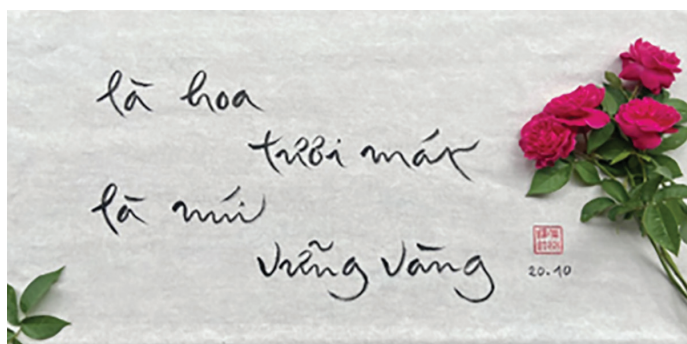 là hoa
tươi mát
là núi
vững vàng
20.10